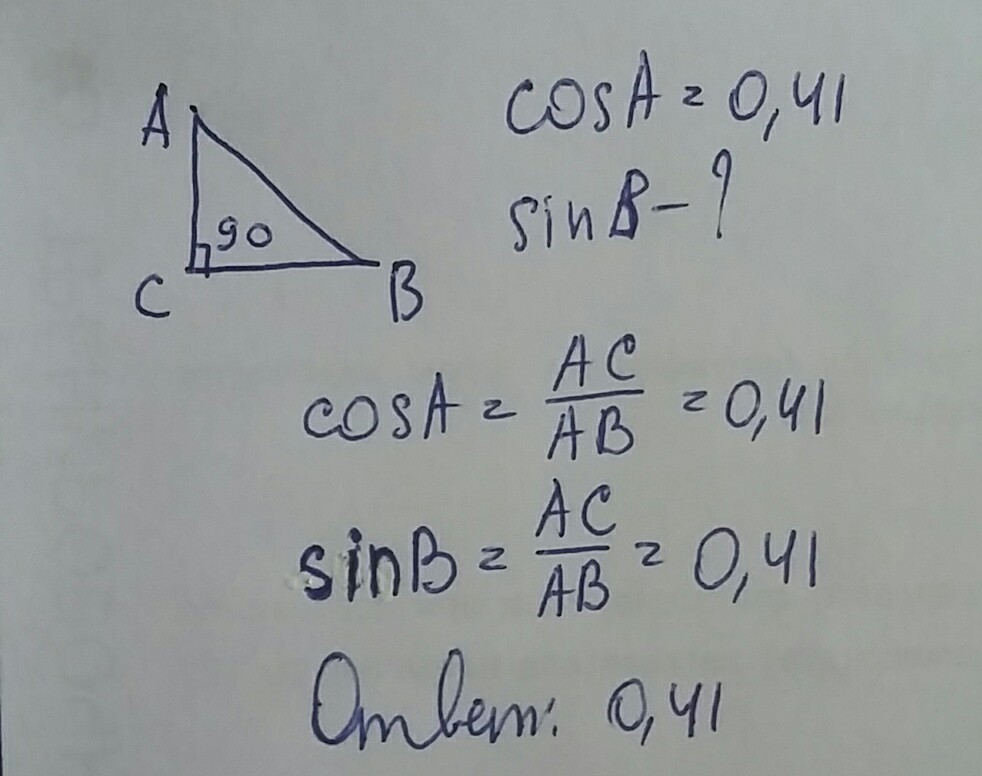 A
cosA = 0,41
sinB - ?
90
C
B
cosA = AC/AB = 0,41
sinB = AC/AB = 0,41
Ответ: 0,41